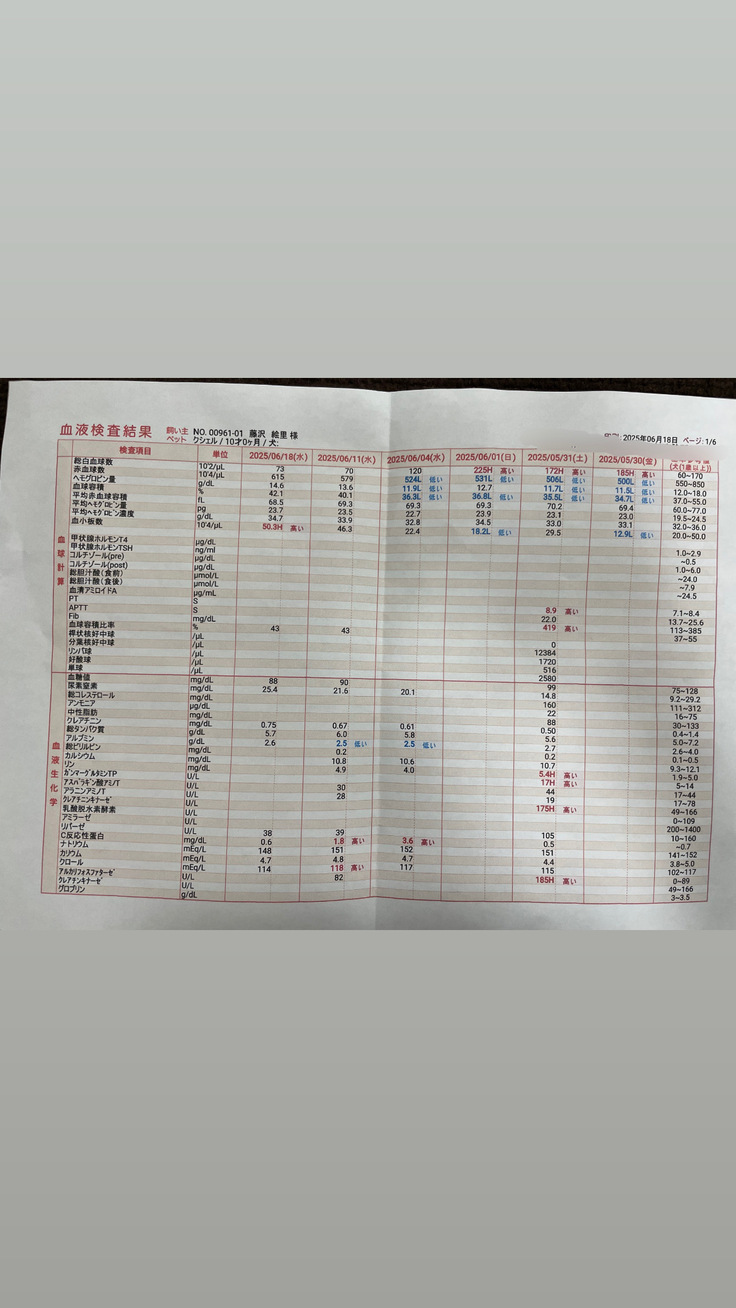 血液検査結果 飼い主 NO. 00961-01 藤沢 絵里 様
ペット クシェル / 10才0ヶ月 / 犬: 2025年06月18日 ページ: 1/6
検査項目 単位 2025/06/18(水) 2025/06/11(水) 2025/06/04(水) 2025/06/01(日) 2025/05/31(土) 2025/05/30(金) (犬(1歳以上))
総白血球数 10˄2/μL 73 70 120 225H 高い 172H 高い 185H 高い 60~170
赤血球数 10˄4/μL 615 579 524L 低い 531L 低い 506L 低い 500L 低い 550~850
ヘモグロビン量 g/dL 14.6 13.6 11.9L 低い 12.7 11.7L 低い 11.5L 低い 12.0~18.0
血球容積 % 42.1 40.1 36.3L 低い 36.8L 低い 35.5L 低い 34.7L 低い 37.0~55.0
平均赤血球容積 fL 68.5 69.3 69.3 69.3 70.2 69.4 60.0~77.0
平均ヘモグロビン量 pg 23.7 23.5 22.7 23.9 23.1 23.0 19.5~24.5
平均ヘモグロビン濃度 g/dL 34.7 33.9 32.8 34.5 33.0 33.1 32.0~36.0
血小板数 10˄4/μL 50.3H 高い 46.3 22.4 18.2L 低い 29.5 12.9L 低い 20.0~50.0
血球計算
甲状腺ホルモンT4 μg/dL 1.0~2.9
甲状腺ホルモンTSH ng/ml ~0.5
コルチゾール(pre) μg/dL 1.0~6.0
コルチゾール(post) μg/dL ~24.0
総胆汁酸(食前) μmol/L ~7.9
総胆汁酸(食後) μmol/L ~24.5
血清アミロイドA μg/mL
PT S 8.9 高い 7.1~8.4
APTT S 22.0 13.7~25.6
Fib mg/dL 419 高い 113~385
血球容積比率 % 43 43 37~55
桿状核好中球 /μL 0
分葉核好中球 /μL 12384
リンパ球 /μL 1720
好酸球 /μL 516
単球 /μL 2580
血液生化学
血糖値 mg/dL 88 90 99 75~128
尿素窒素 mg/dL 25.4 21.6 20.1 14.8 9.2~29.2
総コレステロール mg/dL 160 111~312
アンモニア μg/dL 22 16~75
中性脂肪 mg/dL 88 30~133
クレアチニン mg/dL 0.75 0.67 0.61 0.50 0.4~1.4
総タンパク質 g/dL 5.7 6.0 5.8 5.6 5.0~7.2
アルブミン g/dL 2.6 2.5 低い 2.5 低い 2.7 2.6~4.0
総ビリルビン mg/dL 0.2 0.2 0.1~0.5
カルシウム mg/dL 10.8 10.6 10.7 9.3~12.1
リン mg/dL 4.9 4.0 5.4H 高い 1.9~5.0
ガンマーグルタミンTP U/L 17H 高い 5~14
アスパラギン酸アミノT U/L 30 44 17~44
アラニンアミノT U/L 28 19 17~78
クレアチニンキナーゼ U/L 175H 高い 49~166
乳酸脱水素酵素 U/L 0~109
アミラーゼ U/L 200~1400
リパーゼ U/L 38 39 105 10~160
C反応性蛋白 mg/dL 0.6 1.8 高い 3.6 高い 0.5 ~0.7
ナトリウム mEq/L 148 151 152 151 141~152
カリウム mEq/L 4.7 4.8 4.7 4.4 3.8~5.0
クロール mEq/L 114 118 高い 117 115 102~117
アルカリフォスファターゼ U/L 82 185H 高い 0~89
クレアチンキナーゼ U/L 49~166
グロブリン g/dL 3~3.5